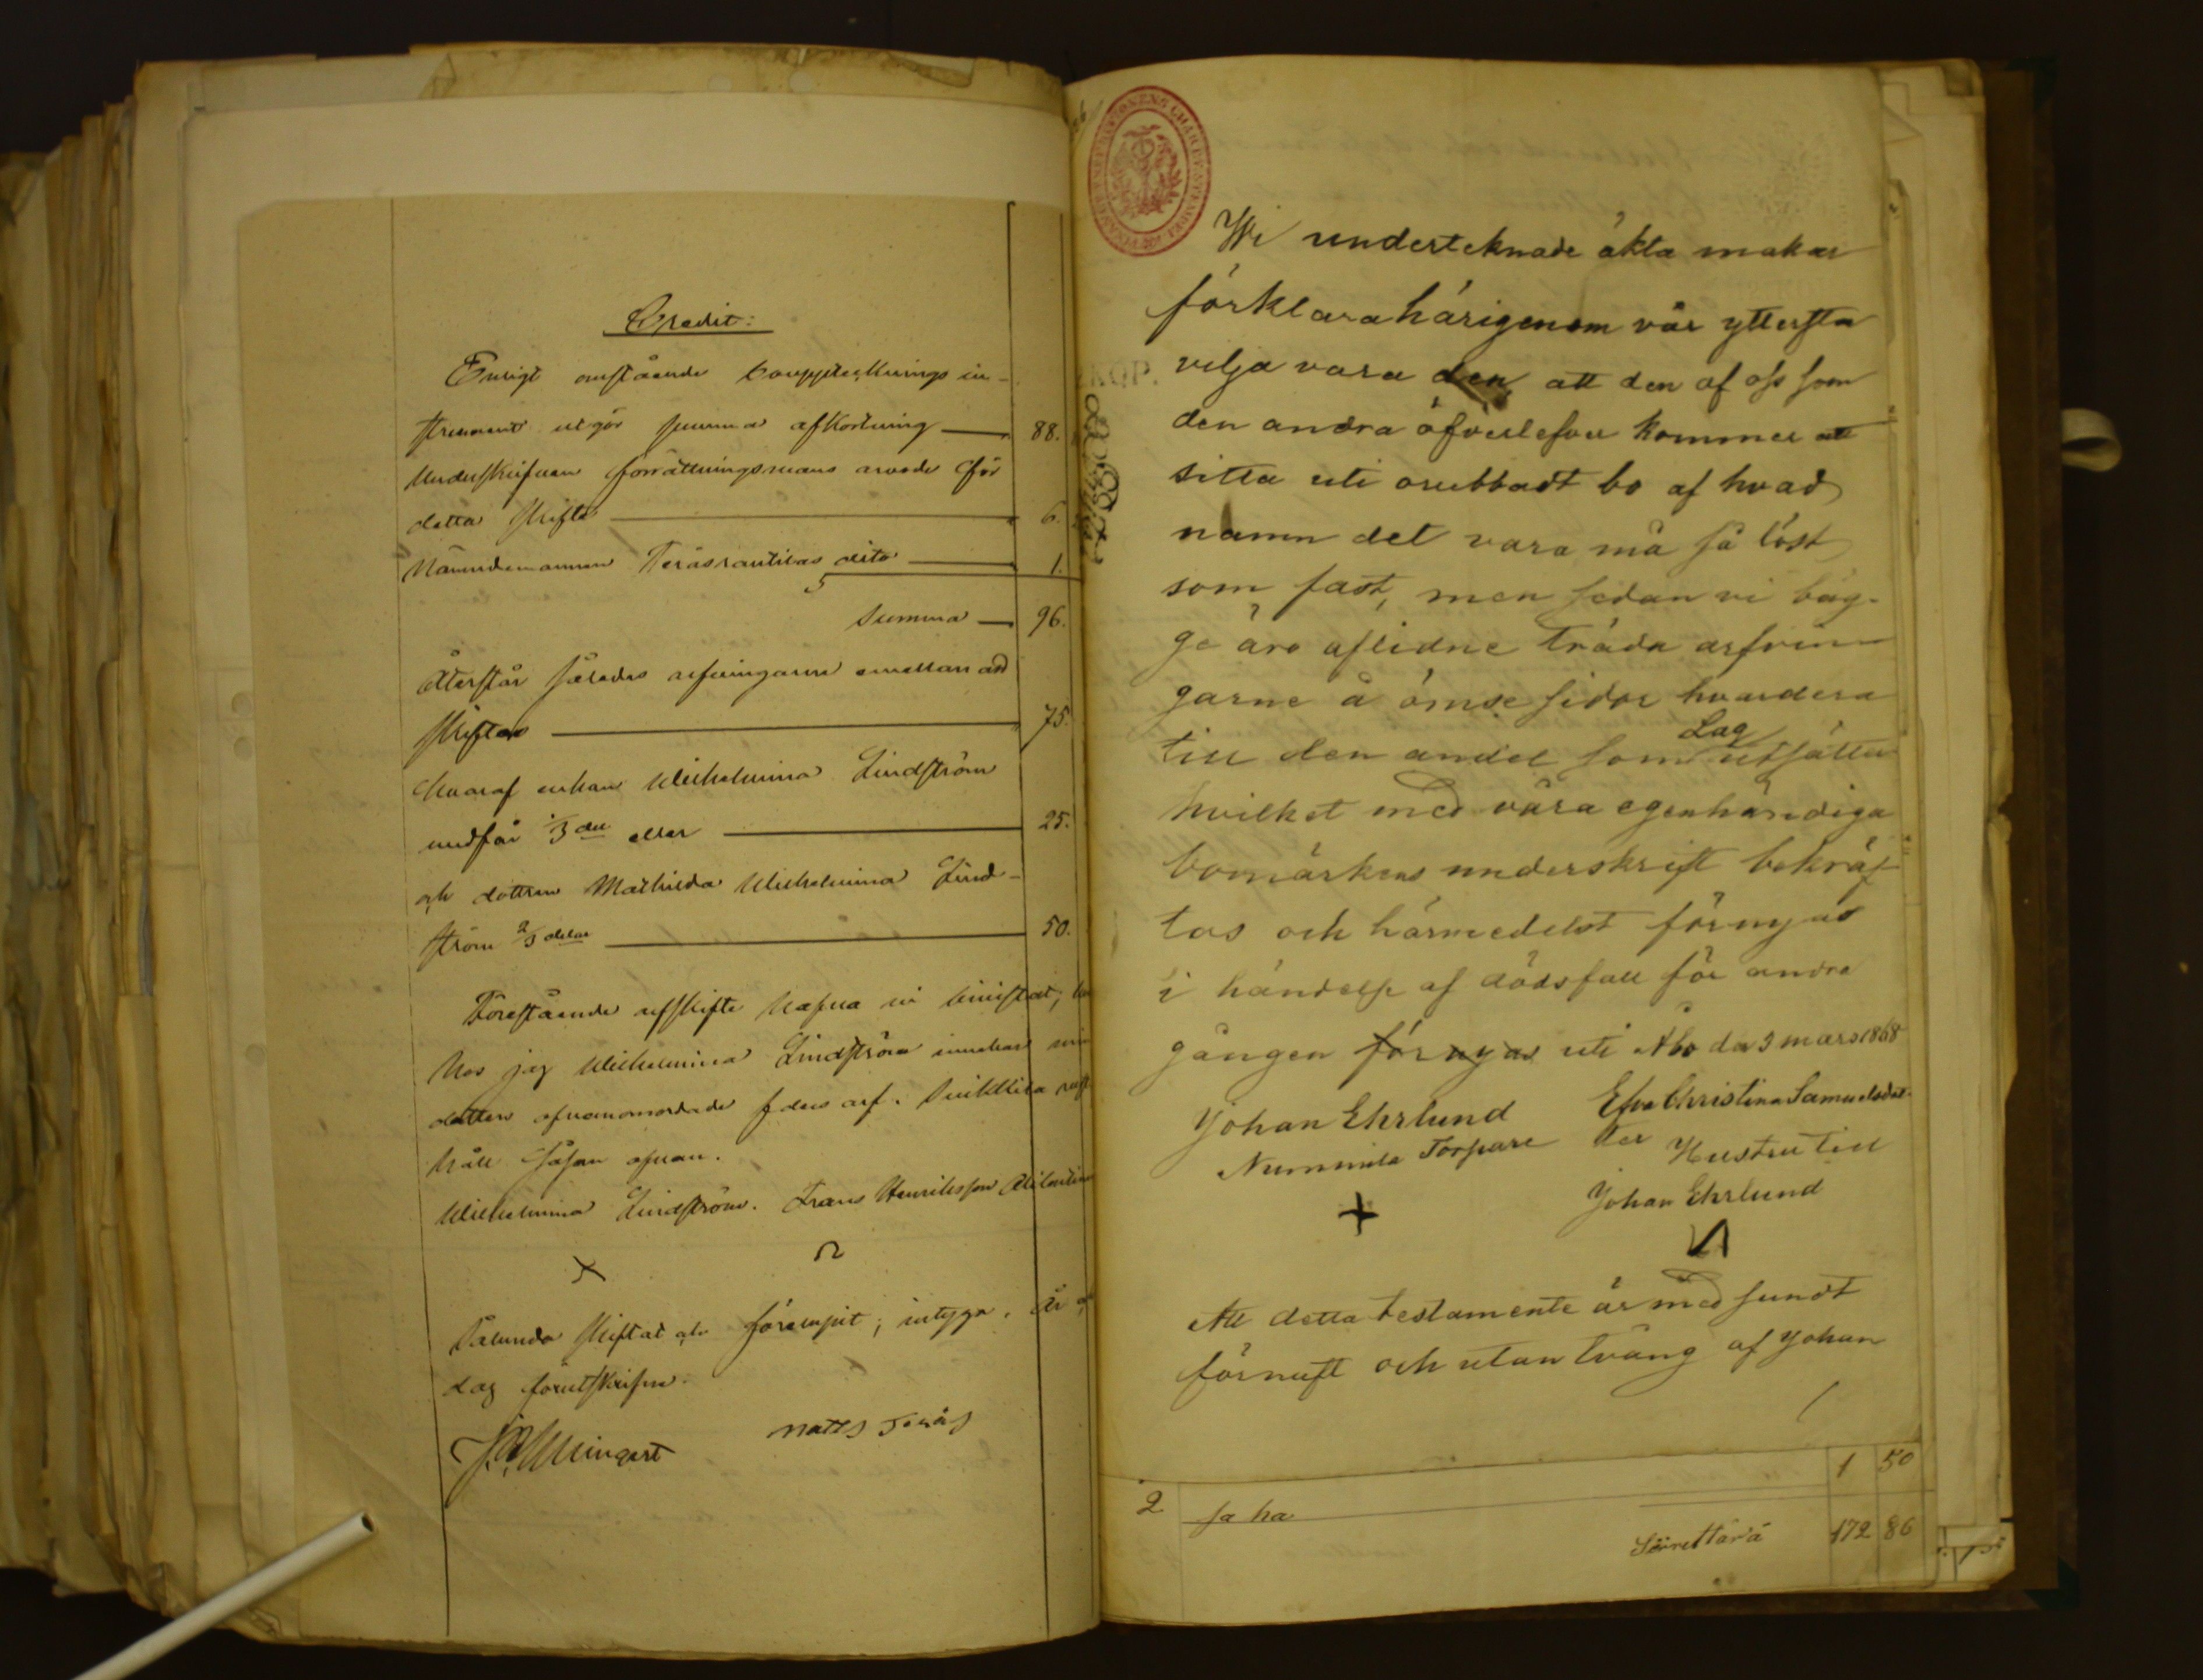 Credit:
Enligt omstående boupptecknings in-
strument utgör summa afkortning 88.
Underskrifven förrättningsmans arvode för
detta skifte 6.
Nämndemannen dito 1.
Summa 96.
Återstår således arfvingarne emellan att
skiftas 75.
Hvaraf enkan Wilhelmina Lindström
undfår 1/3 del eller 25.
och dottren Mathilda Wilhelmina Lind-
ström 2/3 delar 50.
Förestående arfskifte hafva vi
hos jag Wilhelmina Lindström
dotten ofvanomordade arf.
håll såsom ofvan.
Wilhelmina Lindström. Frans Henriksson
Sålunda skiftat och intyga. År
dag förutskrifne.
Matts Teräs
Wi underteknade äkta makar
förklara härigenom vår yttersta
vilja vara den, att den af oss som
den andra öfverlefver kommer att
sitta uti orubbadt bo af hvad
namn det vara må så löst
som fast, men sedan vi båg-
ge äro aflidne träda arfvin
garne å ömse sidor hvardera
till den andel som Lag utsätter
hvilket med våra egenhändiga
bomärkens underskrift bekräf
tas och härmedelst förnyas
i händelse af dödsfall för andra
gången förnyas uti Åbo den 3 mars 1868
Johan Ehrlund Efva Christina Samuelsdot-
Nummila Torpare ter Hustru till
Johan Ehrlund
Att detta testamente är med sundt
förnuft och utan tvång af Johan
1 50
2 ja ha
Siirrettävä 172 86